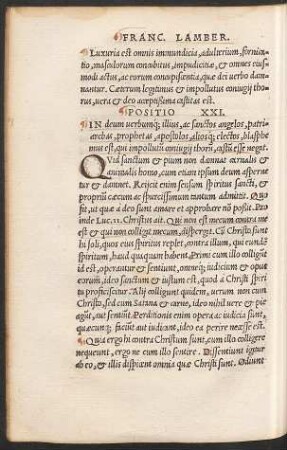 FRANC. LAMBER.
Luxuria est omnis immundicia, adulterium, fornica-
tio, masculorum concubitus, impudicitiæ, & omnes eius-
modi actus, ac eorum concupiscentia, quæ dei verbo dam-
nantur. Cæterum legitimus & impollutus coniugij tho-
rus, vera & deo acceptissima castitas est.
POSITIO XXI.
IN deum uerbumq; illius, ac sanctos angelos, patri-
archas, prophetas, apostolos, aliosq; electos, blasphe-
mus est, qui impollutũ coniugij thorũ, castũ esse negat.
QVid sanctum & pium non damnat carnalis &
animalis homo, cum etiam ipsum deum asperne-
tur & damnet. Reijcit enim sensum spiritus sancti, &
proprium cæcum ac spurcissimum tantum admittit. Quo
fit, ut quæ à deo sunt amare et approbare nõ possit. Pro
inde Luc. 11. Christus ait. Qui non est mecum contra me
est & qui non colligit mecum, dispergit. Cũ Christo sunt
hi soli, quos eius spiritus replet, contra illum, qui eundẽ
spiritum, haud quaquam habent. Primi cum illo colligũt
id est, operantur & sentiunt, omneq; iudicium & opus
eorum, ideo sanctum & iustum est, quod à Christi spiri
tu proficiscitur. Alij colligunt quidem, uerum non cum
Christo, sed cum Satana & carne, ideo nihil uere & pie
agũt, aut sentiũt. Perditionis enim opera ac iudicia sunt,
quæcunq; faciũt aut iudicant, ideo ea perire necesse est.
Quia ergo hi contra Christum sunt, cum illo colligere
nequeunt, ergo ne cum illo sentire. Dissentiunt igitur
ab eo, & illis displicent omnia quæ Christi sunt. Odiunt